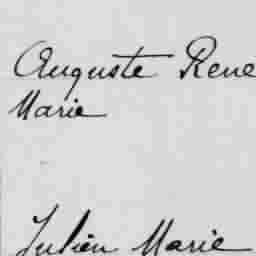 Auguste René
Marie
Julien Marie